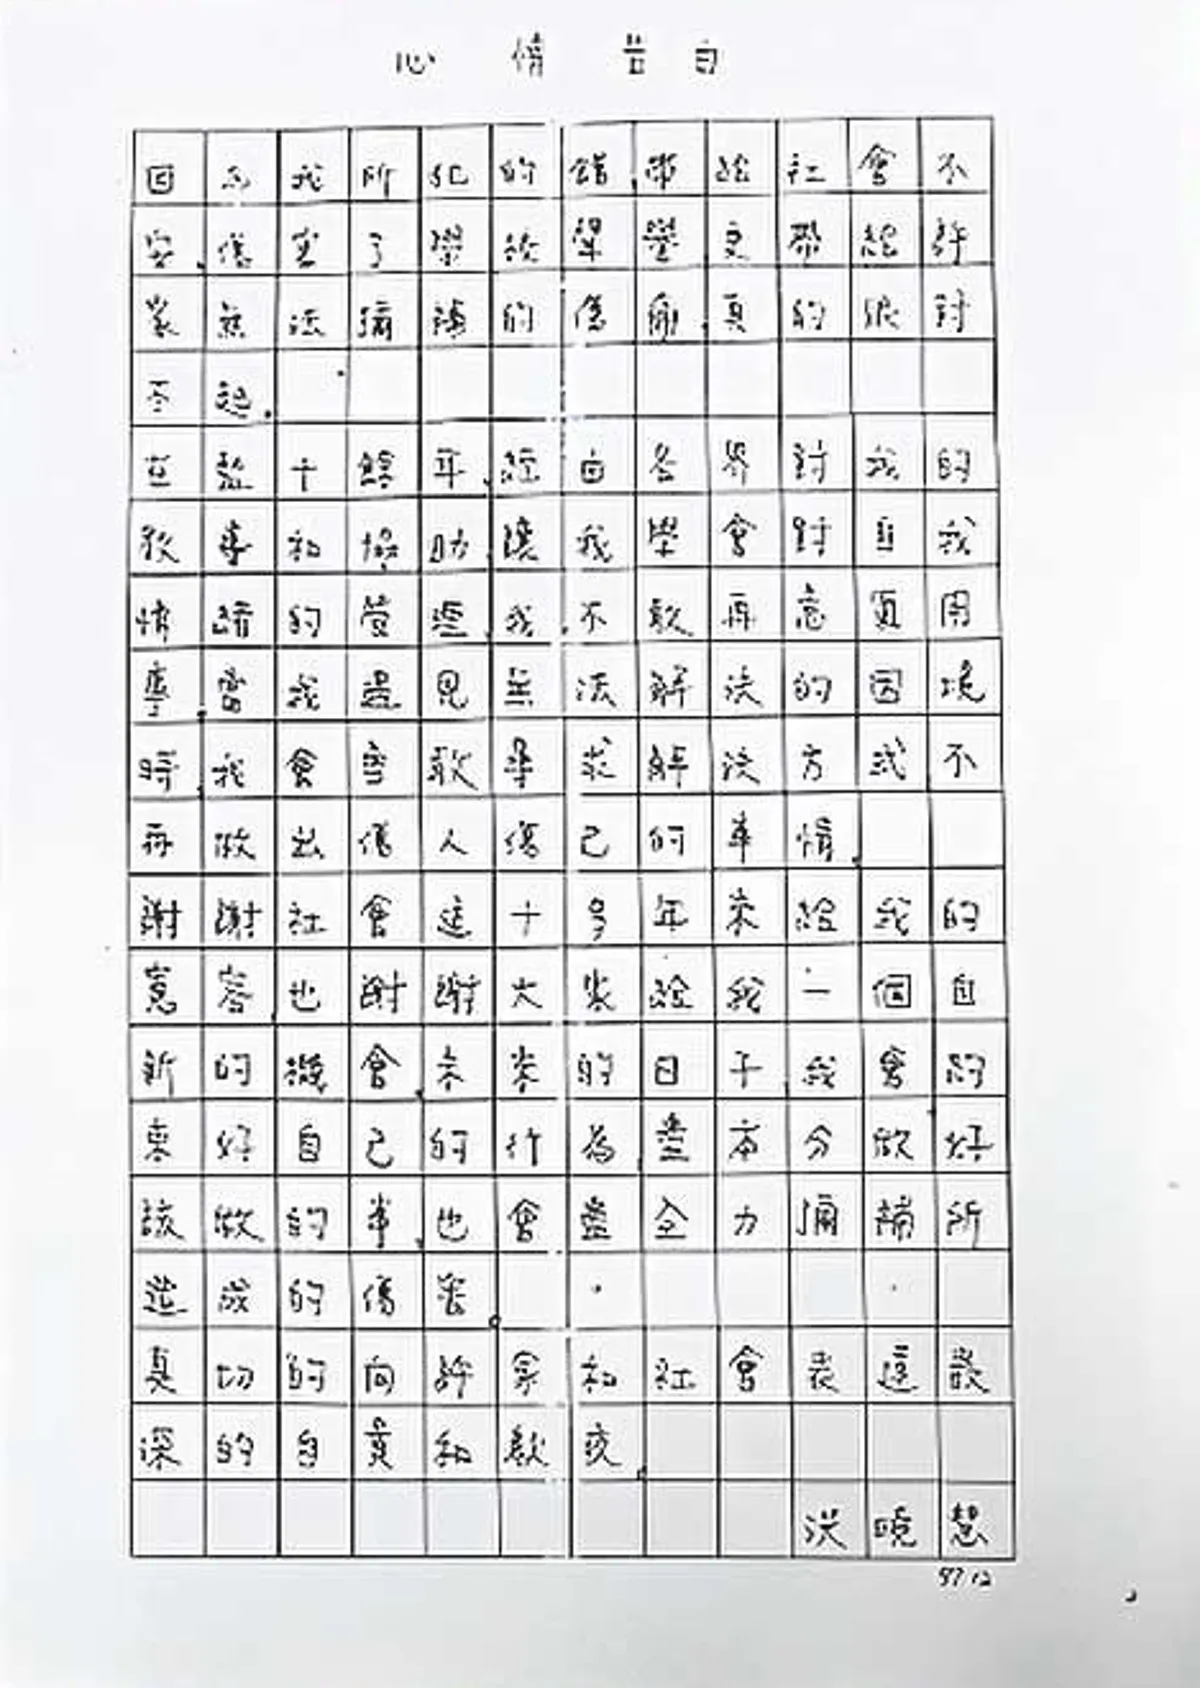 心情告白
因為我所犯的錯,帶給社會不
安,傷害了學校聲譽更帶給許
家無法彌補的傷痛,真的很對
不起.
在監十餘年,經由各界對我的
教導和協助,讓我學會對自我
情緒的管理,我,不敢再意氣用
事,當我遇見無法解決的困境
時,我會勇敢尋求解決方式不
再做出傷人傷己的事情.
謝謝社會這十多年來給我的
寬容,也謝謝大家給我一個自
新的機會,未來的日子,我會約
束好自己的行為,盡本分做好
該做的事,也會盡全力彌補所
造成的傷害。
真切的向許家和社會表達最
深的自責和歉疚.
洪曉慧
97.12